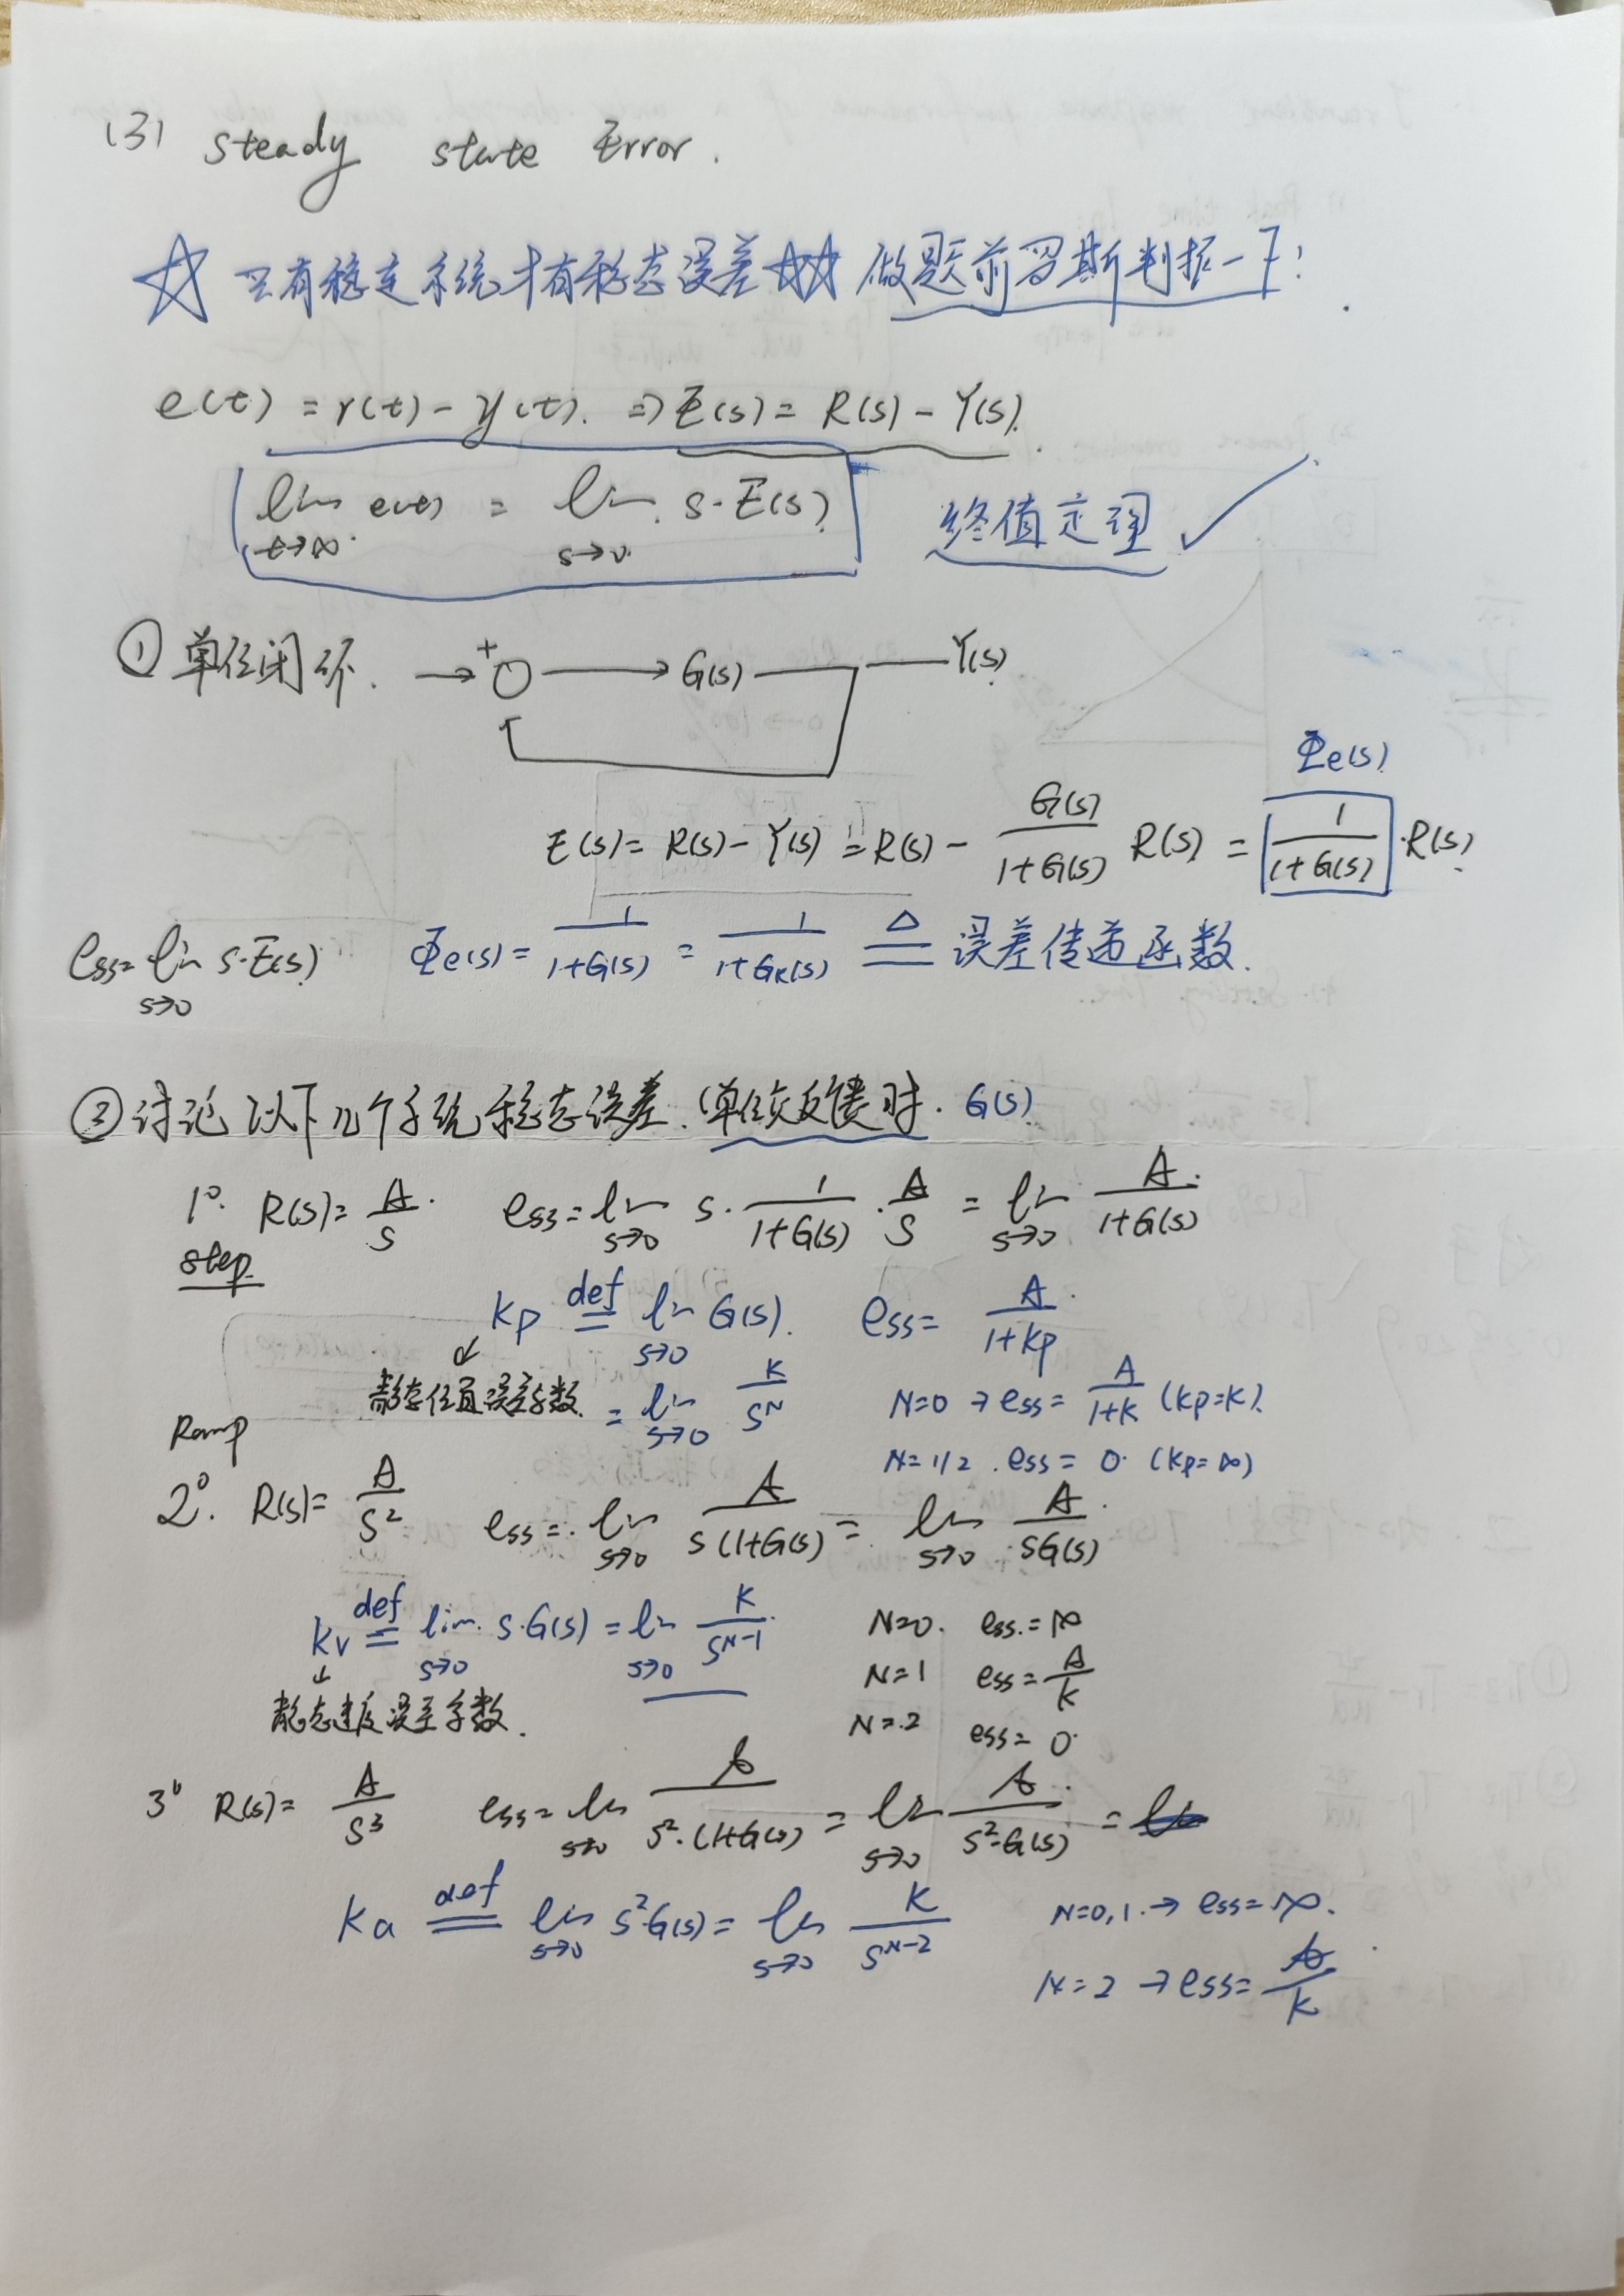 (3) Steady state Error.
☆ 只有稳定系统才有稳态误差☆☆ 做题前罗斯判据一下!
e(t) = r(t) - y(t). ⇒ E(s) = R(s) - Y(s).
lim t→∞ e(t) = lim s→0 s·E(s) 终值定理 ✓
① 单位闭环. → + ○ → G(s) — Y(s)
Φe(s)
E(s) = R(s) - Y(s) = R(s) - G(s)/(1+G(s)) R(s) = 1/(1+G(s)) · R(s)
ess = lim s→0 s·E(s) Φe(s) = 1/(1+G(s)) = 1/(1+Gk(s)) ≜ 误差传递函数.
② 讨论以下几个系统稳态误差. (单位负反馈时. G(s)
1° R(s) = A/s. ess = lim s→0 s · 1/(1+G(s)) · A/s = lim s→0 A/(1+G(s))
step
kp def= lim s→0 G(s). ess = A/(1+kp)
静态位置误差系数. = lim s→0 K/s^N N=0 → ess = A/(1+K) (kp=K).
Ramp N=1/2. ess = 0. (kp=∞)
2°. R(s) = A/s² ess = lim s→0 A/(s(1+G(s))) = lim s→0 A/(sG(s))
kv def= lim s→0 s·G(s) = lim s→0 K/s^(N-1) N=0. ess = ∞
N=1 ess = A/K
静态速度误差系数. N=2 ess = 0.
3° R(s) = A/s³ ess = lim s→0 A/(s²·(1+G(s))) = lim s→0 A/(s²·G(s)) =
ka def= lim s→0 s²G(s) = lim s→0 K/s^(N-2) N=0,1. → ess = ∞.
N=2 → ess = A/K